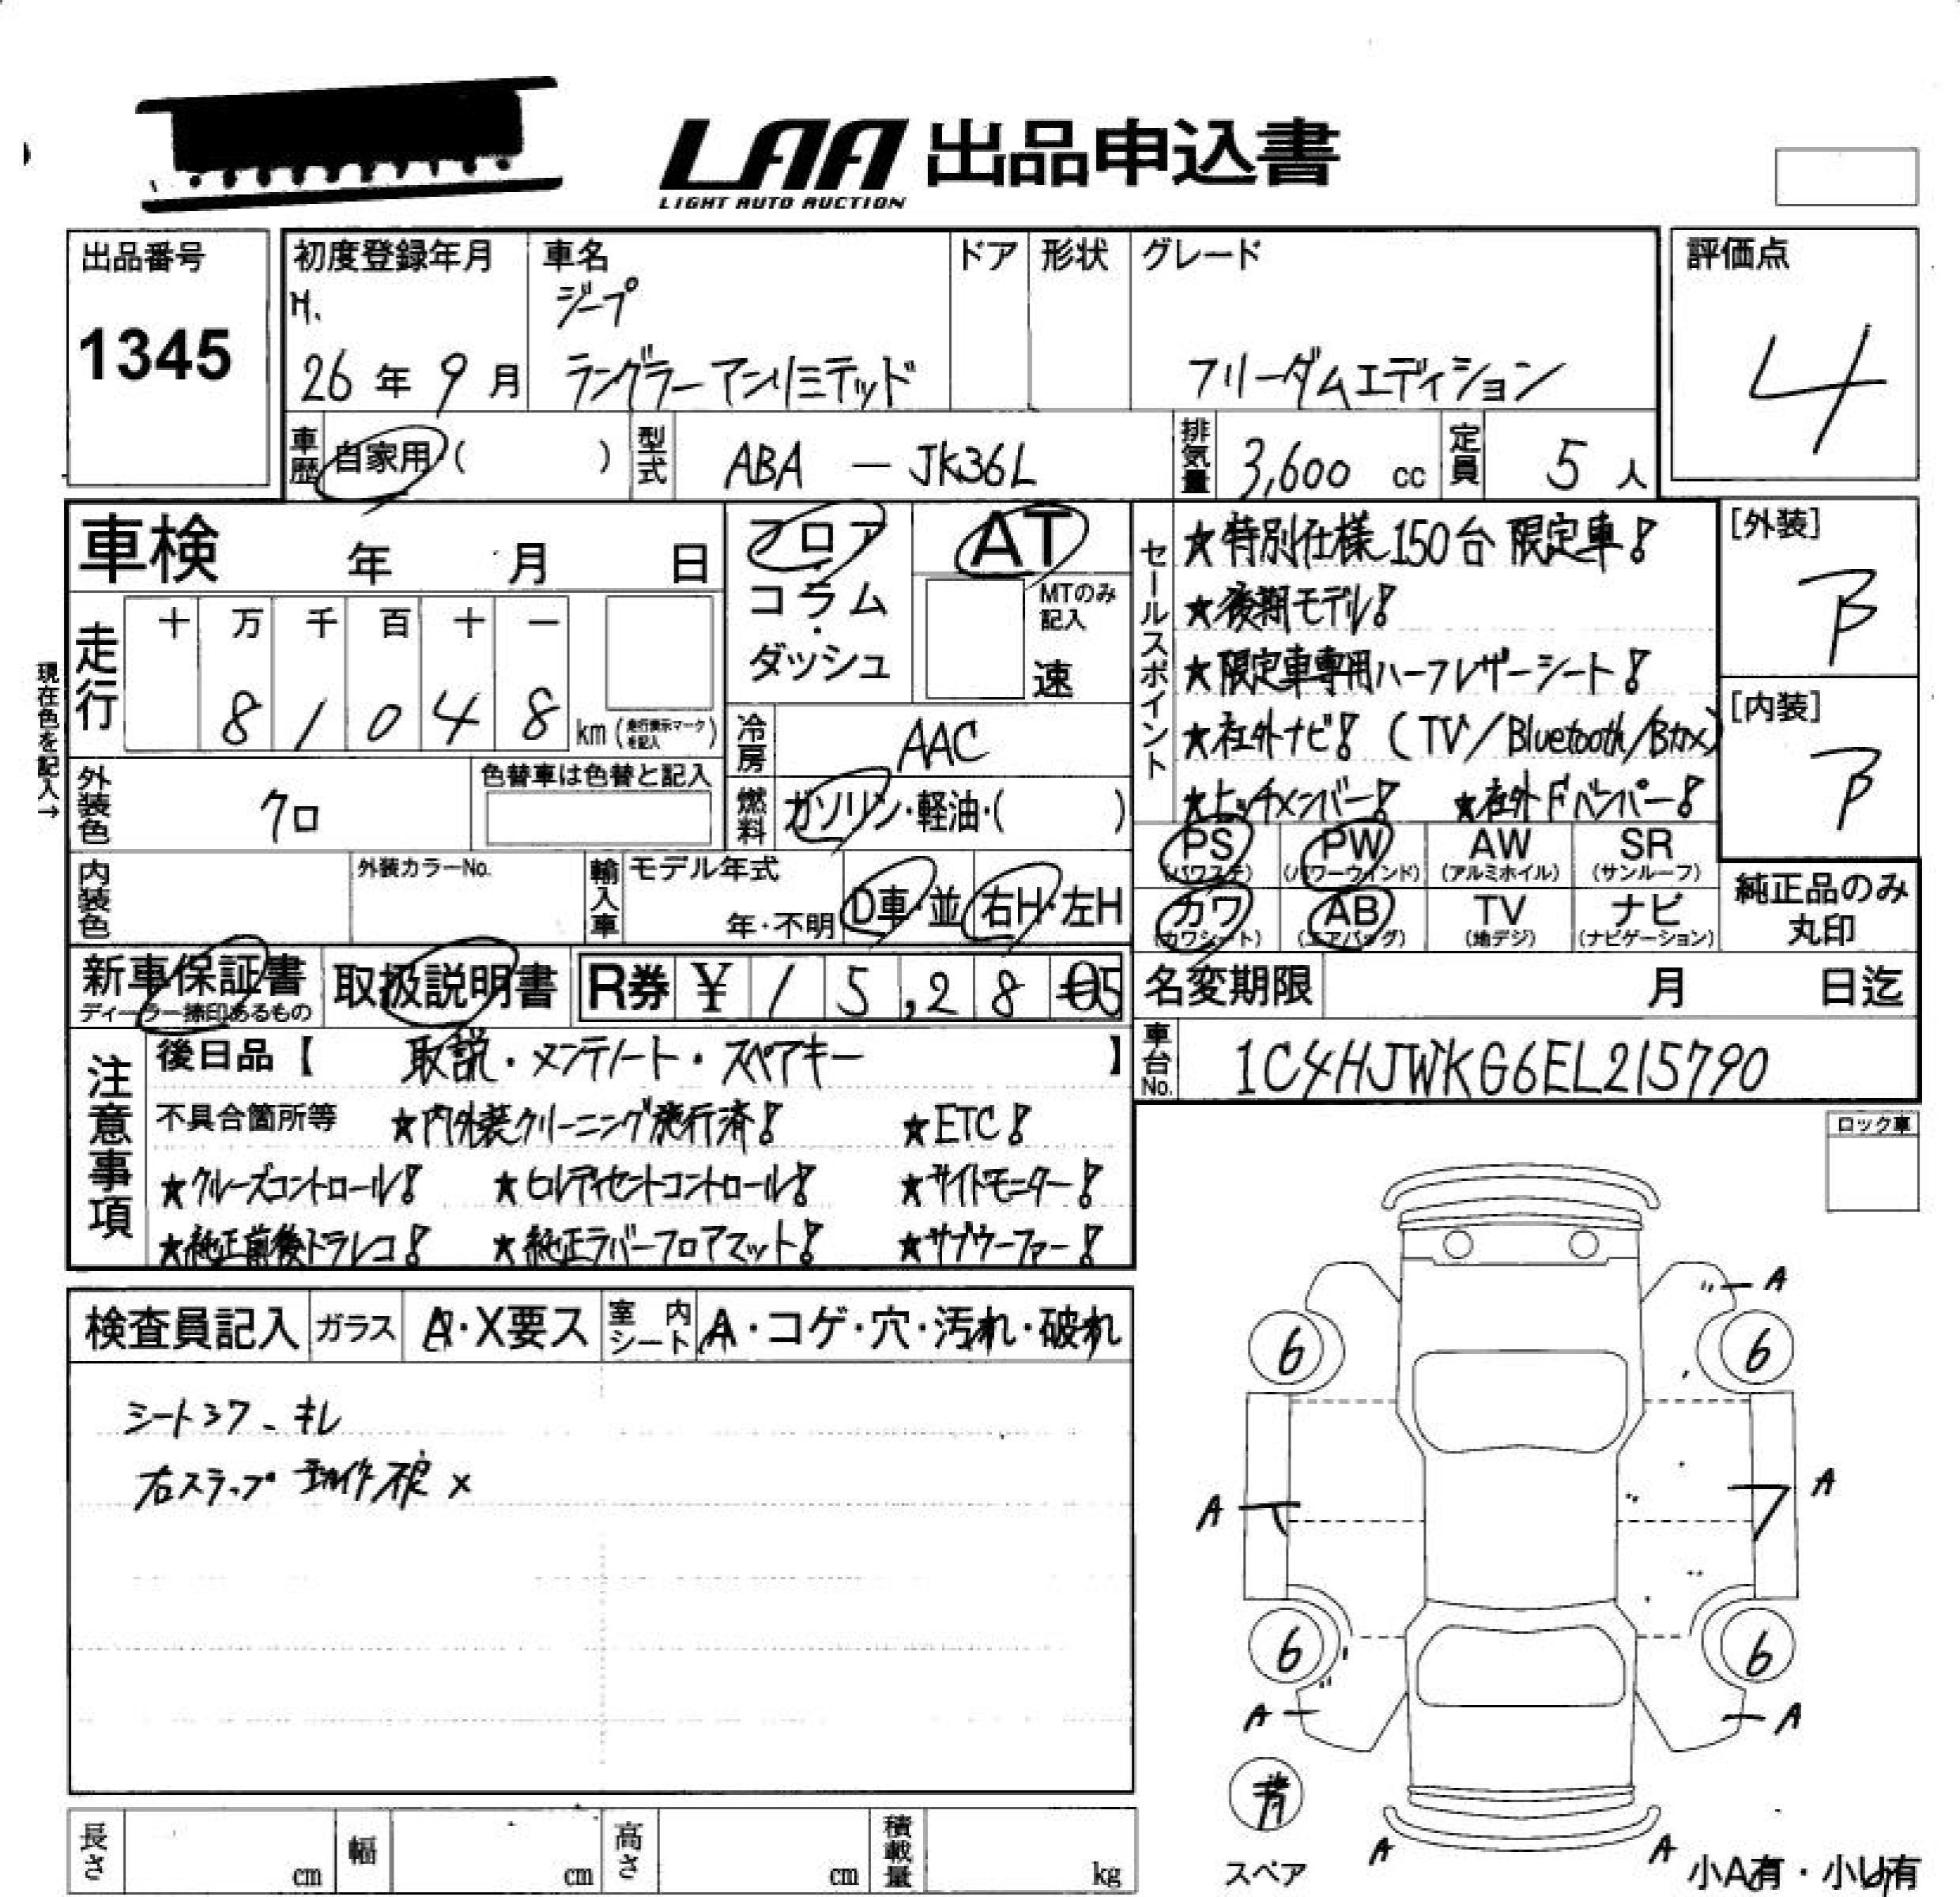 LAA 出品申込書
LIGHT AUTO AUCTION
出品番号
1345
初度登録年月
H.
26 年 9 月
車名
ジープ
ラングラーアンリミテッド
ドア
形状
グレード
フリーダムエディション
評価点
4
車歴 自家用 ( )
型式 ABA — JK36L
排気量 3,600 cc
定員 5 人
車検 年 月 日
フロア・コラム・ダッシュ
AT
MTのみ記入
速
セールスポイント
★特別仕様150台限定車!
★後期モデル!
★限定車専用ハーフレザーシート!
★社外ナビ! (TV/Bluetooth/Bカメ)
★ヒッチメンバー! ★社外Fバンパー!
[外装]
B
[内装]
B
現在色を記入→
走行
十 万 千 百 十 一
8 1 0 4 8 km (走行表示マークを記入)
冷房 AAC
外装色 クロ
色替車は色替と記入
燃料 ガソリン・軽油・( )
内装色
外装カラーNo.
輸入車
モデル年式
年・不明
D車・並
右H・左H
PS (パワステ)
PW (パワーウインド)
AW (アルミホイル)
SR (サンルーフ)
カワ (カワシート)
AB (エアバッグ)
TV (地デジ)
ナビ (ナビゲーション)
純正品のみ丸印
新車保証書
ディーラー捺印あるもの
取扱説明書
R券 ¥ 1 5,2 8 5
名変期限 月 日迄
車台No. 1C4HJWKG6EL215790
注意事項
後日品【 取説・メンテノート・スペアキー 】
不具合箇所等 ★内外装クリーニング施行済! ★ETC!
★クルーズコントロール! ★ヒルディセントコントロール! ★サイドモニター!
★純正前後ドラレコ! ★純正ラバーフロアマット! ★サブウーファー!
ロック車
検査員記入
ガラス A・X要ス
室内シート A・コゲ・穴・汚れ・破れ
シートスレ、キレ
右ステップ 動作不良 X
A
6
6
A
A
6
6
A
A
スペア
A
A
小A有・小U有
長さ cm
幅 cm
高さ cm
積載量 kg